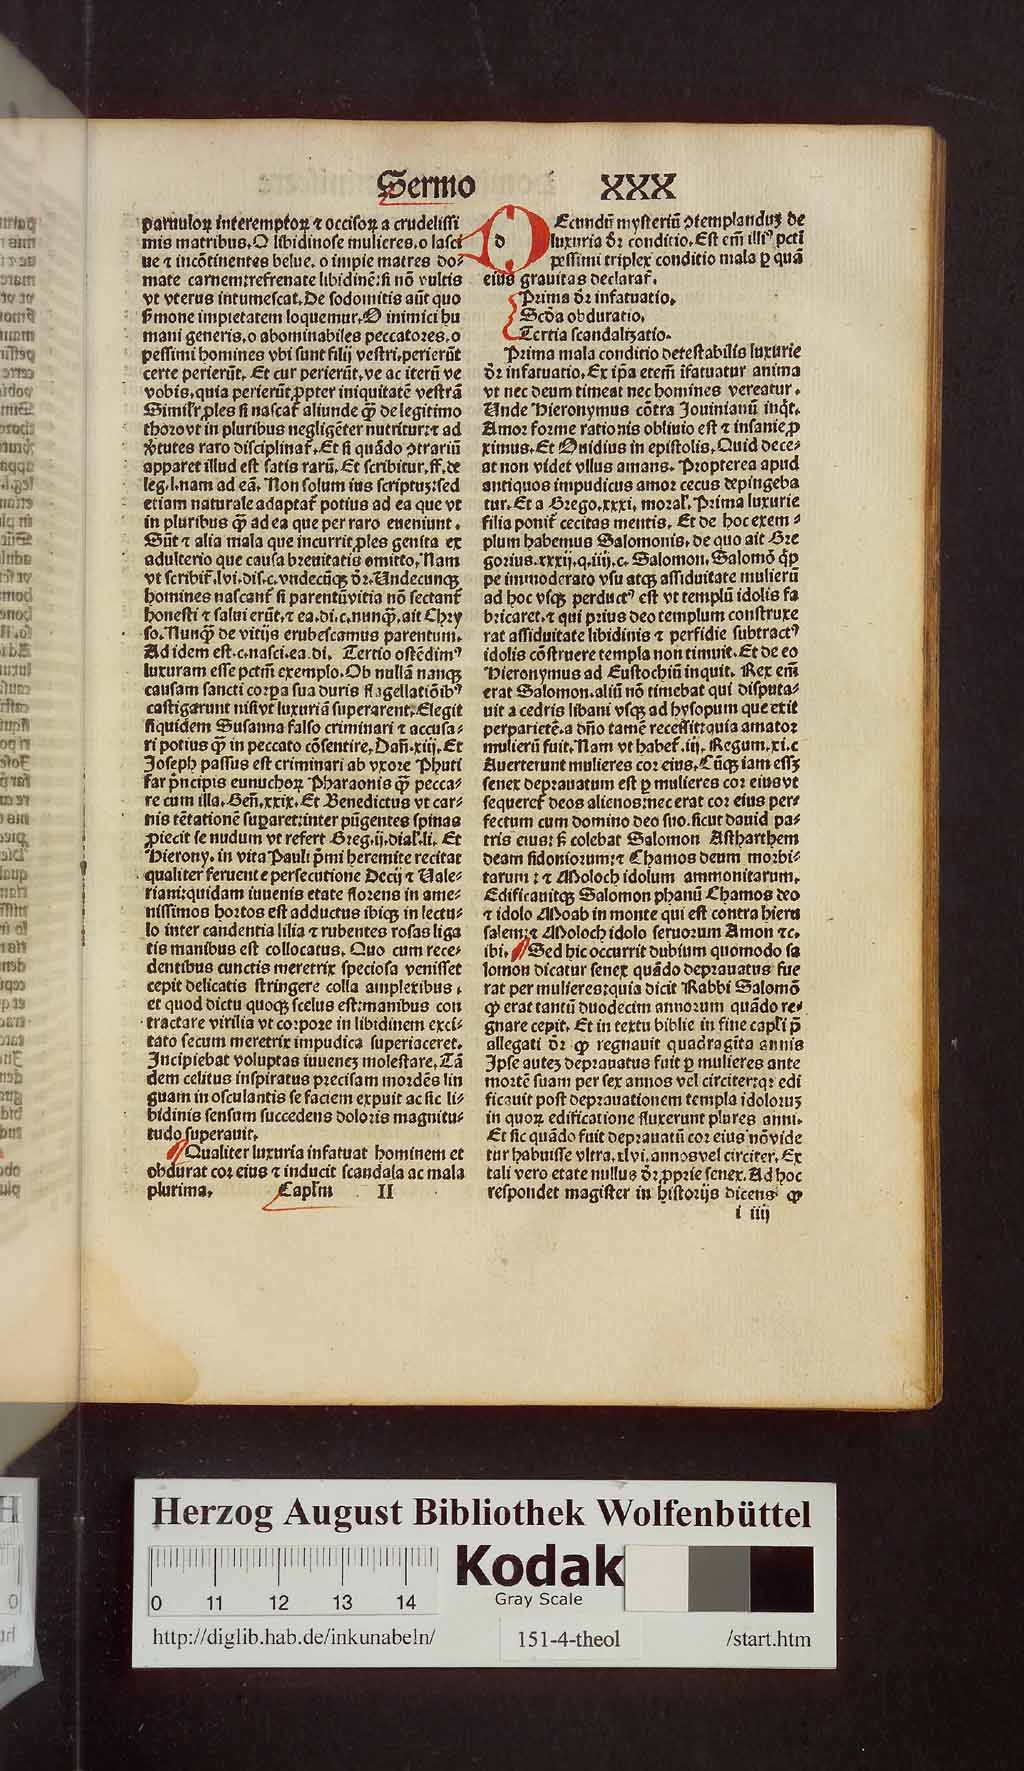 Sermo XXX
paruuloꝝ interemptoꝝ ⁊ occisoꝝ a crudelissi
mis matribus. O libidinose mulieres. o lasci
ue ⁊ incōtinentes belue. o impie matres do⸗
mate carnem: refrenate libidinē: si nō vultis
vt vterus intumescat. De sodomitis aūt quo
sermone impietatem loquemur. O inimici hu
mani generis. o abominabiles peccatores. o
pessimi homines vbi sunt filij vestri. perierūt
certe perierūt. Et cur perierūt. ve ac iterū ve
vobis. quia perierūt ꝓpter iniquitatē vestrā
Simil'r ꝓles si nascat̃ aliunde qꝫ̃ de legitimo
thoro vt in pluribus negligēter nutritur: ⁊ ad
v̓tutes raro disciplinat̃. Et si quādo ↄtrariū
apparet illud est satis rarū. Et scribitur. ff. de
leg. l. nam ad ea. Non solum ius scriptuꝫ: sed
etiam naturale adaptat̃ potius ad ea que vt
in pluribus qꝫ̃ ad ea que per raro eueniunt.
Sūt ⁊ alia mala que incurrit ꝓles genita ex
adulterio que causa breuitatis omitto. Nam
vt scribit̃. lvi. dis. c. vndecūqꝫ dr̄. Undecunqꝫ
homines nascant̃ si parentū vitia nō sectant̃
honesti ⁊ salui erūt. ⁊ ea. di. c. nunqꝫ̃. ait Chry
so. Nunqꝫ̃ de vitijs erubescamus parentum.
Ad idem est. c. nasci. ea. di. Tertio ostēdim⁹
luxuram esse pctm̄ exemplo. Ob nullā nanqꝫ
causam sancti corpa sua duris flagellatiōib⁹
castigarunt nisi vt luxuriā superarent. Elegit
siquidem Susanna falso criminari ⁊ accusa⸗
ri potius qꝫ̃ in peccato cōsentire. Dan̄. xiij. Et
Joseph passus est criminari ab vxore Phuti
far pͥncipis eunuchoꝝ Pharaonis qꝫ̃ pecca⸗
re cum illa. Gen̄. xxix. Et Benedictus vt car⸗
nis tētationē suꝑaret: inter pūgentes spinas
ꝓiecit se nudum vt refert Greg. ij. dial'. li. Et
Hierony. in vita Pauli pͥmi heremite recitat
qualiter feruente persecutione Decij ⁊ Vale⸗
riani: quidam iuuenis etate florens in ame⸗
nissimos hortos est adductus ibiqꝫ in lectu⸗
lo inter candentia lilia ⁊ rubentes rosas liga
tis manibus est collocatus. Quo cum rece⸗
dentibus cunctis meretrix speciosa venisset
cepit delicatis stringere colla amplexibus.
et quod dictu quoqꝫ scelus est: manibus con
tractare virilia vt corpore in libidinem exci⸗
tato secum meretrix impudica superiaceret.
Incipiebat voluptas iuuenēꝫ molestare. Tā
dem celitus inspiratus precisam mordēs lin
guam in osculantis se faciem expuit ac sic li⸗
bidinis sensum succedens doloris magnitu⸗
tudo superauit.
Qualiter luxuria infatuat hominem et
obdurat cor eius ⁊ inducit scandala ac mala
plurima. Capl'm II
d Ecundū mysteriū ↄtemplanduꝫ de
luxuria dr̄ conditio. Est em̄ illi⁹ pcti
pessimi triplex conditio mala ꝑ quā
eius grauitas declarat̃.
Prima dr̄ infatuatio.
Scd̄a obduratio.
Tertia scandalizatio.
Prima mala conditio detestabilis luxurie
dr̄ infatuatio. Ex ip̄a etem̄ īfatuatur anima
vt nec deum timeat nec homines vereatur.
Unde Hieronymus cōtra Jouinianū inqͥt.
Amor forme rationis obliuio est ⁊ insanie ꝓ
ximus. Et Ouidius in epistolis. Quid dece⸗
at non videt vllus amans. Propterea apud
antiquos impudicus amor cecus depingeba
tur. Et a Grego. xxxi. moral'. Prima luxurie
filia ponit̃ cecitas mentis. Et de hoc exem⸗
plum habemus Salomonis. de quo ait Gre
gorius. xxxij. q. iiij. c. Salomon. Salomō qͥp
pe immoderato vsu atqꝫ assiduitate mulierū
ad hoc vsqꝫ perduct⁹ est vt templū idolis fa
bricaret. ⁊ qui prius deo templum construxe
rat assiduitate libidinis ⁊ perfidie subtract⁹
idolis cōstruere templa non timuit. Et de eo
Hieronymus ad Eustochiū inquit. Rex em̄
erat Salomon. aliū nō timebat qui disputa⸗
uit a cedris libani vsqꝫ ad hysopum que exit
per parietē. a dn̄o tamē recessit: quia amator
mulierū fuit. Nam vt habet̃. iij. Regum. xi. c
Auerterunt mulieres cor eius. Cūqꝫ iam esseꝫ
senex deprauatum est ꝑ mulieres cor eius vt
sequeret̃ deos alienos: nec erat cor eius per⸗
fectum cum domino deo suo. sicut dauid pa⸗
tris eius: sꝫ colebat Salomon Astharthem
deam sidoniorum: ⁊ Chamos deum moabi⸗
tarum: ⁊ Moloch idolum ammonitarum.
Edificauitqꝫ Salomon phanū Chamos deo
⁊ idolo Moab in monte qui est contra hieru
salem: ⁊ Moloch idolo seruorum Amon ⁊c.
ibi. Sed hic occurrit dubium quomodo sa
lomon dicatur senex quādo deprauatus fue
rat per mulieres: quia dicit Rabbi Salomō
ꝙ erat tantū duodecim annorum quādo re⸗
gnare cepit. Et in textu biblie in fine capl'i p̄
allegati dr̄ ꝙ regnauit quadragīta annis
Ipse auteꝫ deprauatus fuit ꝑ mulieres ante
mortē suam per sex annos vel circiter: qꝛ edi
ficauit post deprauationem templa idoloruꝫ
in quoꝝ edificatione fluxerunt plures anni.
Et sic quādo fuit deprauatū cor eius nō vide
tur habuisse vltra. xlvi. annos vel circiter. Ex
tali vero etate nullus dr̄ ꝓprie senex. Ad hoc
respondet magister in historijs dicens ꝙ
i iiij
Herzog August Bibliothek Wolfenbüttel
Kodak
Gray Scale
0 11 12 13 14
http://diglib.hab.de/inkunabeln/ 151-4-theol /start.htm